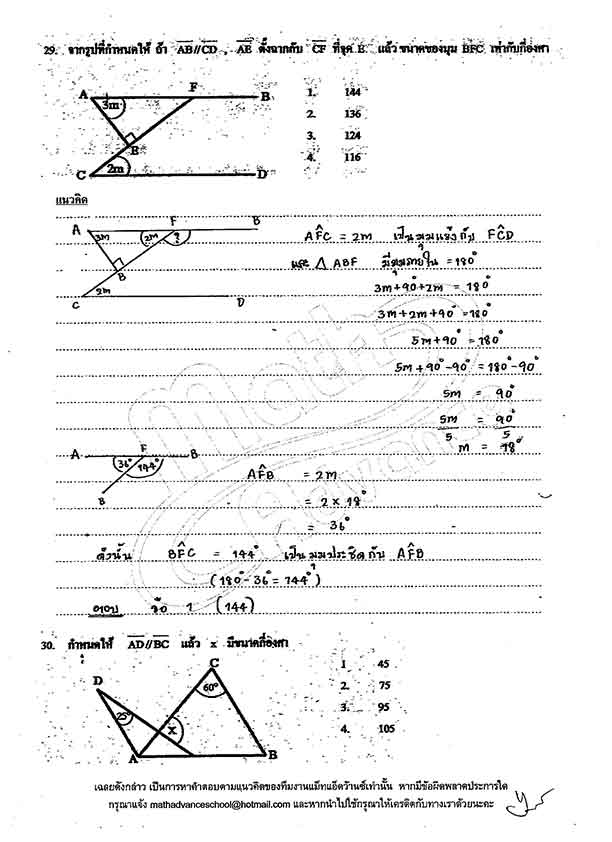 29. จากรูปที่กำหนดให้ ถ้า AB//CD , AE ตั้งฉากกับ CF ที่จุด E แล้ว ขนาดของมุม BFC เท่ากับกี่องศา
A F B
3m
E
C 2m D
1. 144
2. 136
3. 124
4. 116
แนวคิด
A F B
3m 2m ?
B
2m
C D
AF̂C = 2m เป็นมุมแย้งกับ FĈD
และ △ ABF มีมุมภายใน = 180°
3m + 90° + 2m = 180°
3m + 2m + 90° = 180°
5m + 90° = 180°
5m + 90° - 90° = 180° - 90°
5m = 90°
5m/5 = 90°/5
m = 18°
A F B
36° 144°
B
AF̂B = 2m
= 2 x 18°
= 36°
ดังนั้น BF̂C = 144° เป็นมุมประชิดกับ AF̂B
(180° - 36° = 144°)
ตอบ ข้อ 1 (144)
Math
Advance
30. กำหนดให้ AD//BC แล้ว x มีขนาดกี่องศา
C
D 60°
25° x
A B
1 45
2. 75
3. 95
4. 105
เฉลยดังกล่าว เป็นการหาคำตอบตามแนวคิดของทีมงานแม็ทแอ็ดว้านซ์เท่านั้น หากมีข้อผิดพลาดประการใด
กรุณาแจ้ง mathadvanceschool@hotmail.com และหากนำไปใช้กรุณาให้เครดิตกับทางเราด้วยนะคะ